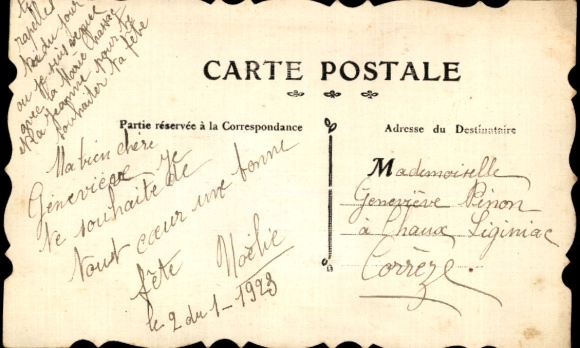 CARTE POSTALE
Partie réservée à la Correspondance
Adresse du Destinataire
Ma bien chère
Geneviève je
te souhaite de
tout cœur une bonne
fête Noëlie
le 2 du 1-1923
te
rapelles
du jour
ou je suis
avec la Marie
et la Jeanne pour te
souhaiter ta fête
Mademoiselle
Geneviève Pinon
à Chaux Liginiac
Corrèze.